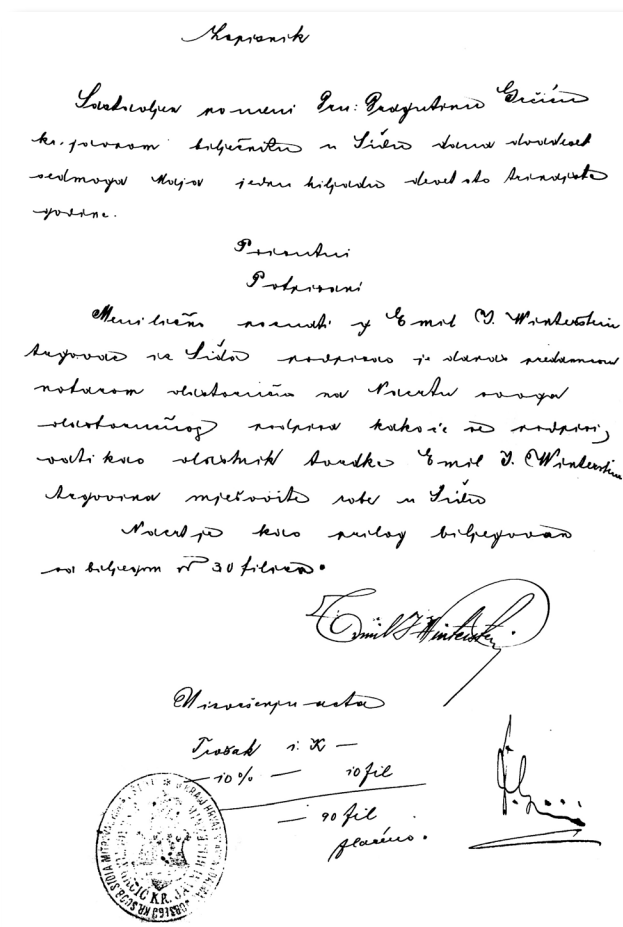 Zapisnik
Sastavljen po meni Dru: Dragutinu Grčiću
kr. javnom bilježniku u Šidu dana dvadeset
sedmoga Maja jednu hiljadu devet sto trinajste
godine.
Prisutni
Potpisani
Meni lično poznati g Emil J. Winterstein
trgovac iz Šida podpisao je danas predamnom
notarom vlastoručno na Nacrtu ovoga
vlastoručnog podpisa kako će se podpisi,
vati kao vlastnik tvrdke Emil J. Winterstein
trgovina mješovite robe u Šidu
Nacrt je kao prilog biljegovan
sa biljegom od 30 filira.
Emil J Winterstein
U izvršenju akta
Trošak i. K —
— 10% — 10 fil
— 90 fil
plaćeno.
GRČIĆ KR. JAV